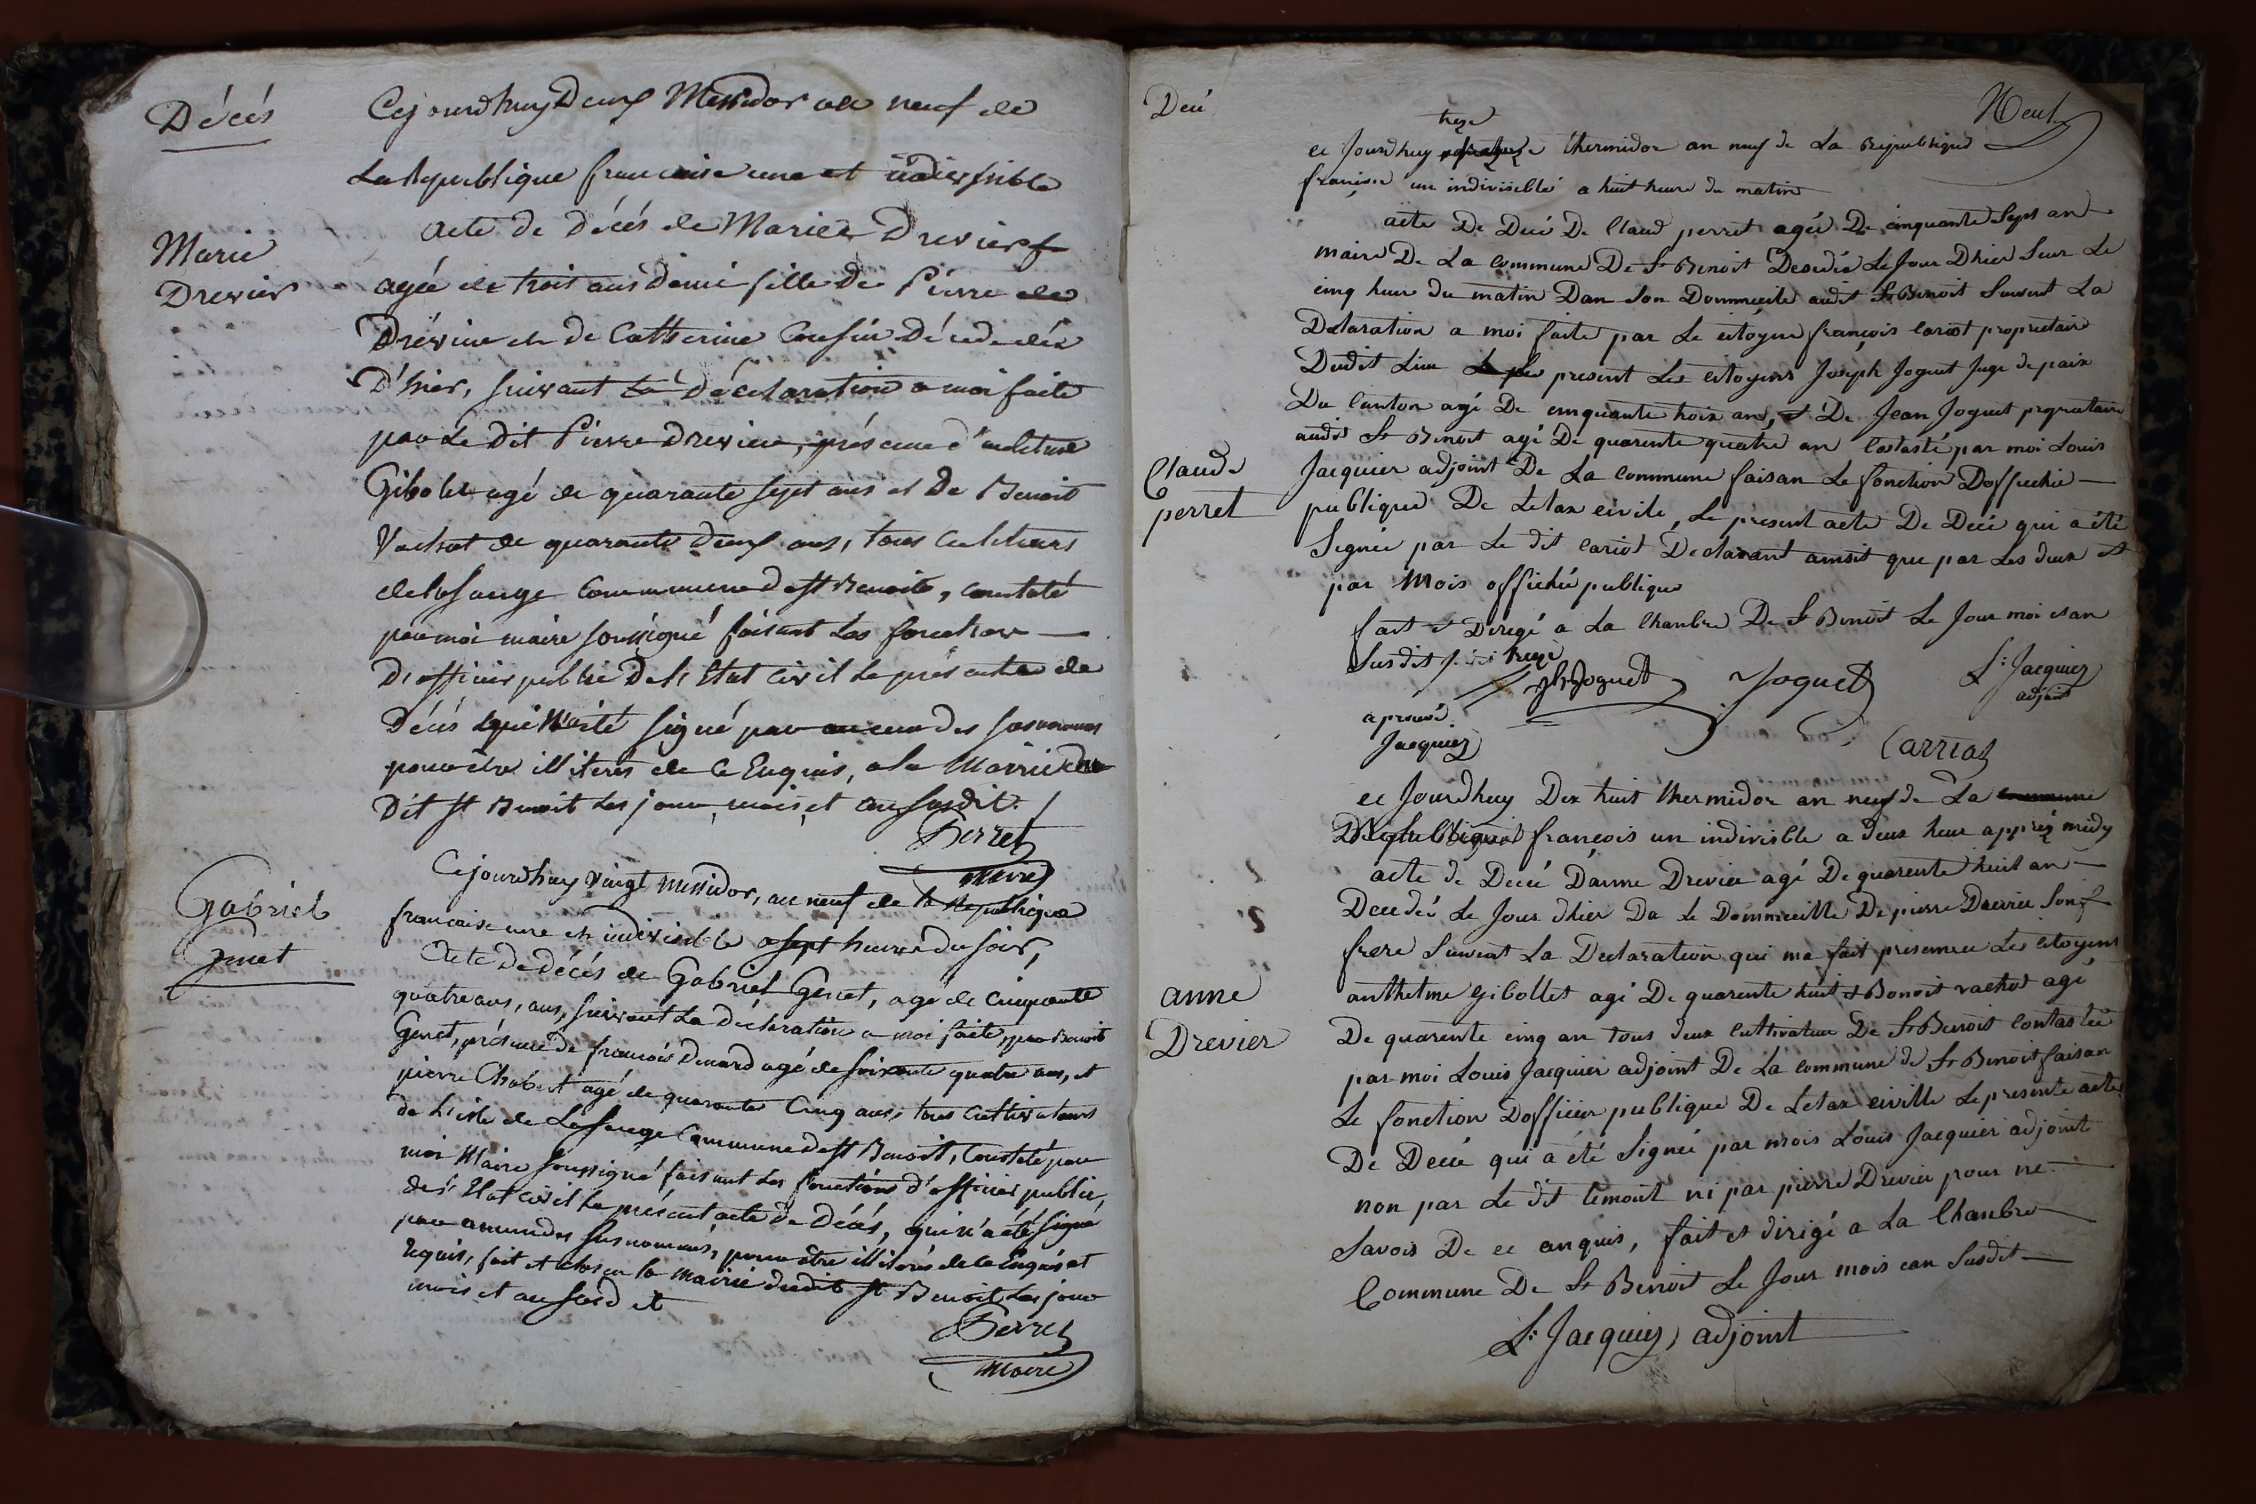 Décés
Cejourdhuy Deux Messidor an neuf de
La Republique francaise une et indivisible
Acte de Décés de Marie Drevier
Marie
Drevier
agée de trois ans demi fille De Pierre
Drevier et de Catherine Cousin Décédée
D'hier, suivant la Déclaration a moi faite
par Le Dit Pierre Drevier, présence d'anthelme
Gibolet agé de quarante sept ans et De Benoit
Vachot de quarante deux ans, tous Cultivateurs
de commune de st Benoit, constaté
par moi maire soussigné faisant Les fonction
D'officier public De l'Etat Civil Le présent acte de
Décés qui N'a été signé par aucun des susnommés
pour être illiteres de Ce Enquis, a la Mairie du
Dit st Benoit Les jour, mois et an susdit.
Perret
maire
Gabriel
Genet
Cejourdhuy vingt messidor, an neuf de la Republique
francaise une et indivisible a sept heures du soir,
Acte de décés de Gabriel Genet, agé de Cinquante
quatre ans, ans, suivant La déclaration a moi faite, par Benoit
Genet, présence de francois Dunard agé de soixante quatre ans, et
pierre Chabert agé de quarante Cinq ans, tous Cultivateurs
de L'isle de commune de st Benoit, Constaté par
moi Maire soussigné faisant Les fonctions d'officier public,
de l'Etat civil Le présent acte De Décés, qui n'a été signé
par aucun des susnommés, pour être illiterés de Ce Enquis et
Requis, fait et clos en la mairie dudit st Benoit Les jour
mois et an susd it
Perret
maire
Decé
Neuf
treze
ce Jourdhuy thermidor an neuf de La Republique
françoise une indivisiblé a huit heure du matin
acte De Decé De Claud perret agée De cinquante Sept an
maire De La commune De St Benoit Decedée Le Jour Dhier Sur Le
cinq heur du matin Dan Son Dommicile audit St Benoit Suivent La
Declaration a moi faite par Le citoyen françois cariot proprietair
Dudit Lieu present Les citoyens Joseph Joguet Juge de paix
Du Canton agé De cinquante troix an, et De Jean Joguet propriétaire
audit St Benoit agé De quarente quatre an Constasté par moi Louis
Claude
perret
Jacquier adjoint De La commune faisan Le fonction Doffichié
publique De Letax civile, Le present acte De Decé qui a été
Signée par Le dit cariot Declarant ainsit que par Les deux et
par Mois offichié publique
fait et Dirigé a La Chanbre De St Benoit Le Jour moi et an
Susdit treze
Jh Joguet Joguet L: Jacquier
adjoint
aprouvé
Jacquier
Carriot
ce Jourdhuy Dix huit thermidor an neuf de La commune
Republique françois un indivisible a deux heur appréz midy
acte de Decé Danne Drevier agé De quarente huit an
Decedeé Le Jour dhier Da Le Dommicille De pierre Drevier Son
frere Suivent La Declaration qui ma fait presence Les citoyens
anthelme gibollet agé De quarente huit et Benoit vachot agé
anne
Drevier
De quarente cinq an tous deux cultivateur De St Benoit Contastée
par moi Louis Jacquier adjoint De La commune de St Benoit faisan
Le fonction Dofficier publique De Letax civille Le presente acte
De Decée qui a été Signée par mois Louis Jacquier adjoint
non par Le dit temoint ni par pierre Drevier pour ne
Savois De ce anquis, fait et dirigé a La Chanbre
Commune De St Benoit Le Jour mois ean Susdit
L: Jacquier adjoint